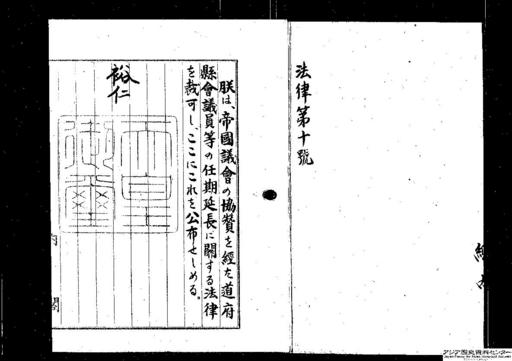 法律第十號
朕は、帝國議會の協賛を経た道府
縣會議員等の任期延長に關する法律
を裁可し、ここにこれを公布せしめる。
裕仁
内閣
アジア歴史資料センター